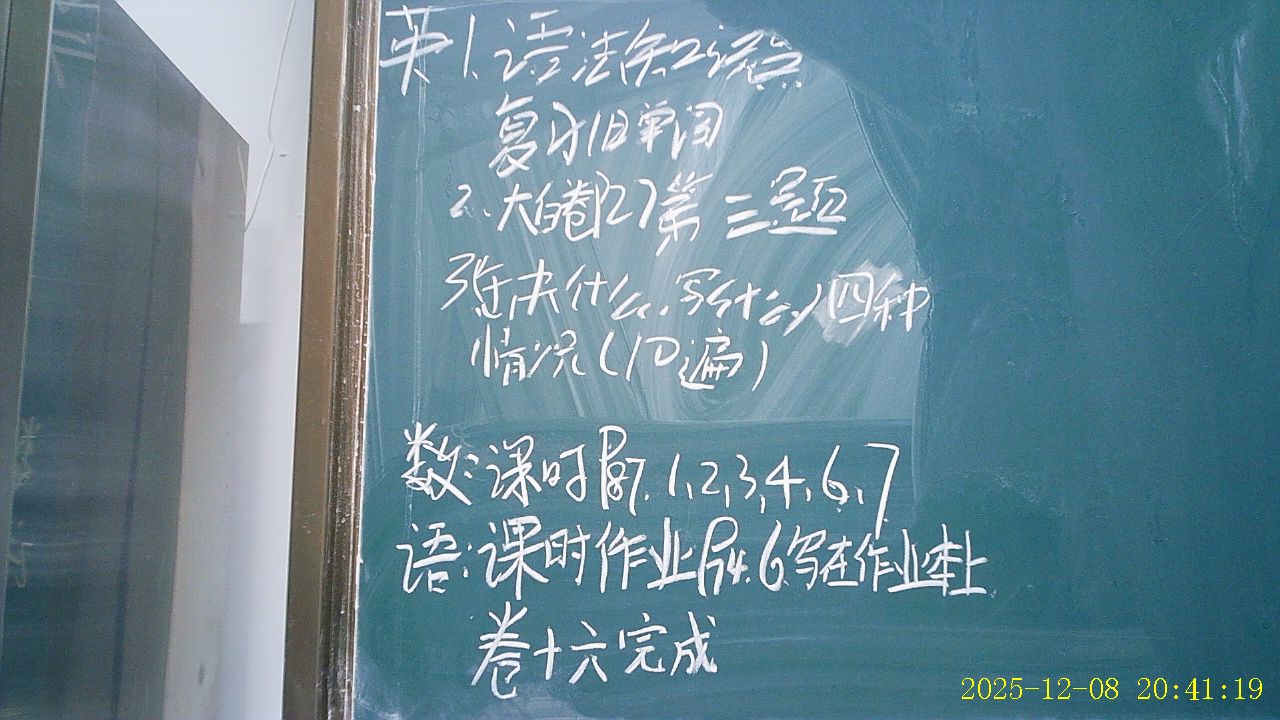 英1.语法知识点
复习旧单词
2.大白卷P27第三题
3.缺什么.写什么)四种
情况(10遍)
数:课时P87.1,2,3,4,6,7
语:课时作业P74.6写在作业本上
卷十六完成
2025-12-08 20:41:19